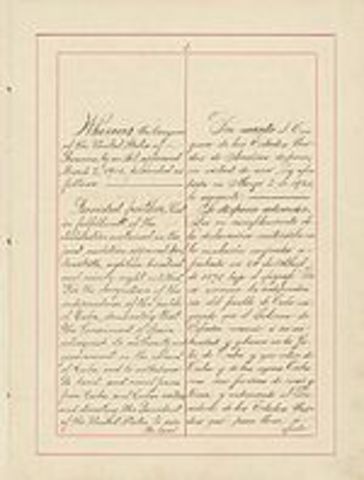 Whereas the Congress
of the United States of
America, by an Act approved
March 2, 1901, provided as
follows:
Provided further, That
in fulfillment of the
declaration contained in the
joint resolution approved
April twentieth, eighteen hundred
and ninety-eight, entitled
"For the recognition of the
independence of the people
of Cuba, demanding that
the Government of Spain
relinquish its authority and
government in the island
of Cuba, and to withdraw
its land and naval forces
from Cuba and Cuban waters,
and directing the President
of the United States to use
the land
Por cuanto el Con-
greso de los Estados Uni-
dos de América dispuso,
en virtud de una ley
de Marzo 2 de 1901,
lo siguiente
de la declaración contenida en
la resolución conjunta
en 20 de Abril
de 1898
la independencia
del pueblo de Cuba
que el Gobierno de
España renuncie á su au-
toridad y gobierno en la Is-
la de Cuba, y que retire de
Cuba y de las aguas Cuba-
nas sus fuerzas de mar y
tierra, y ordenando al Pre-
sidente de los Estados Uni-
dos que para llevar á
efecto